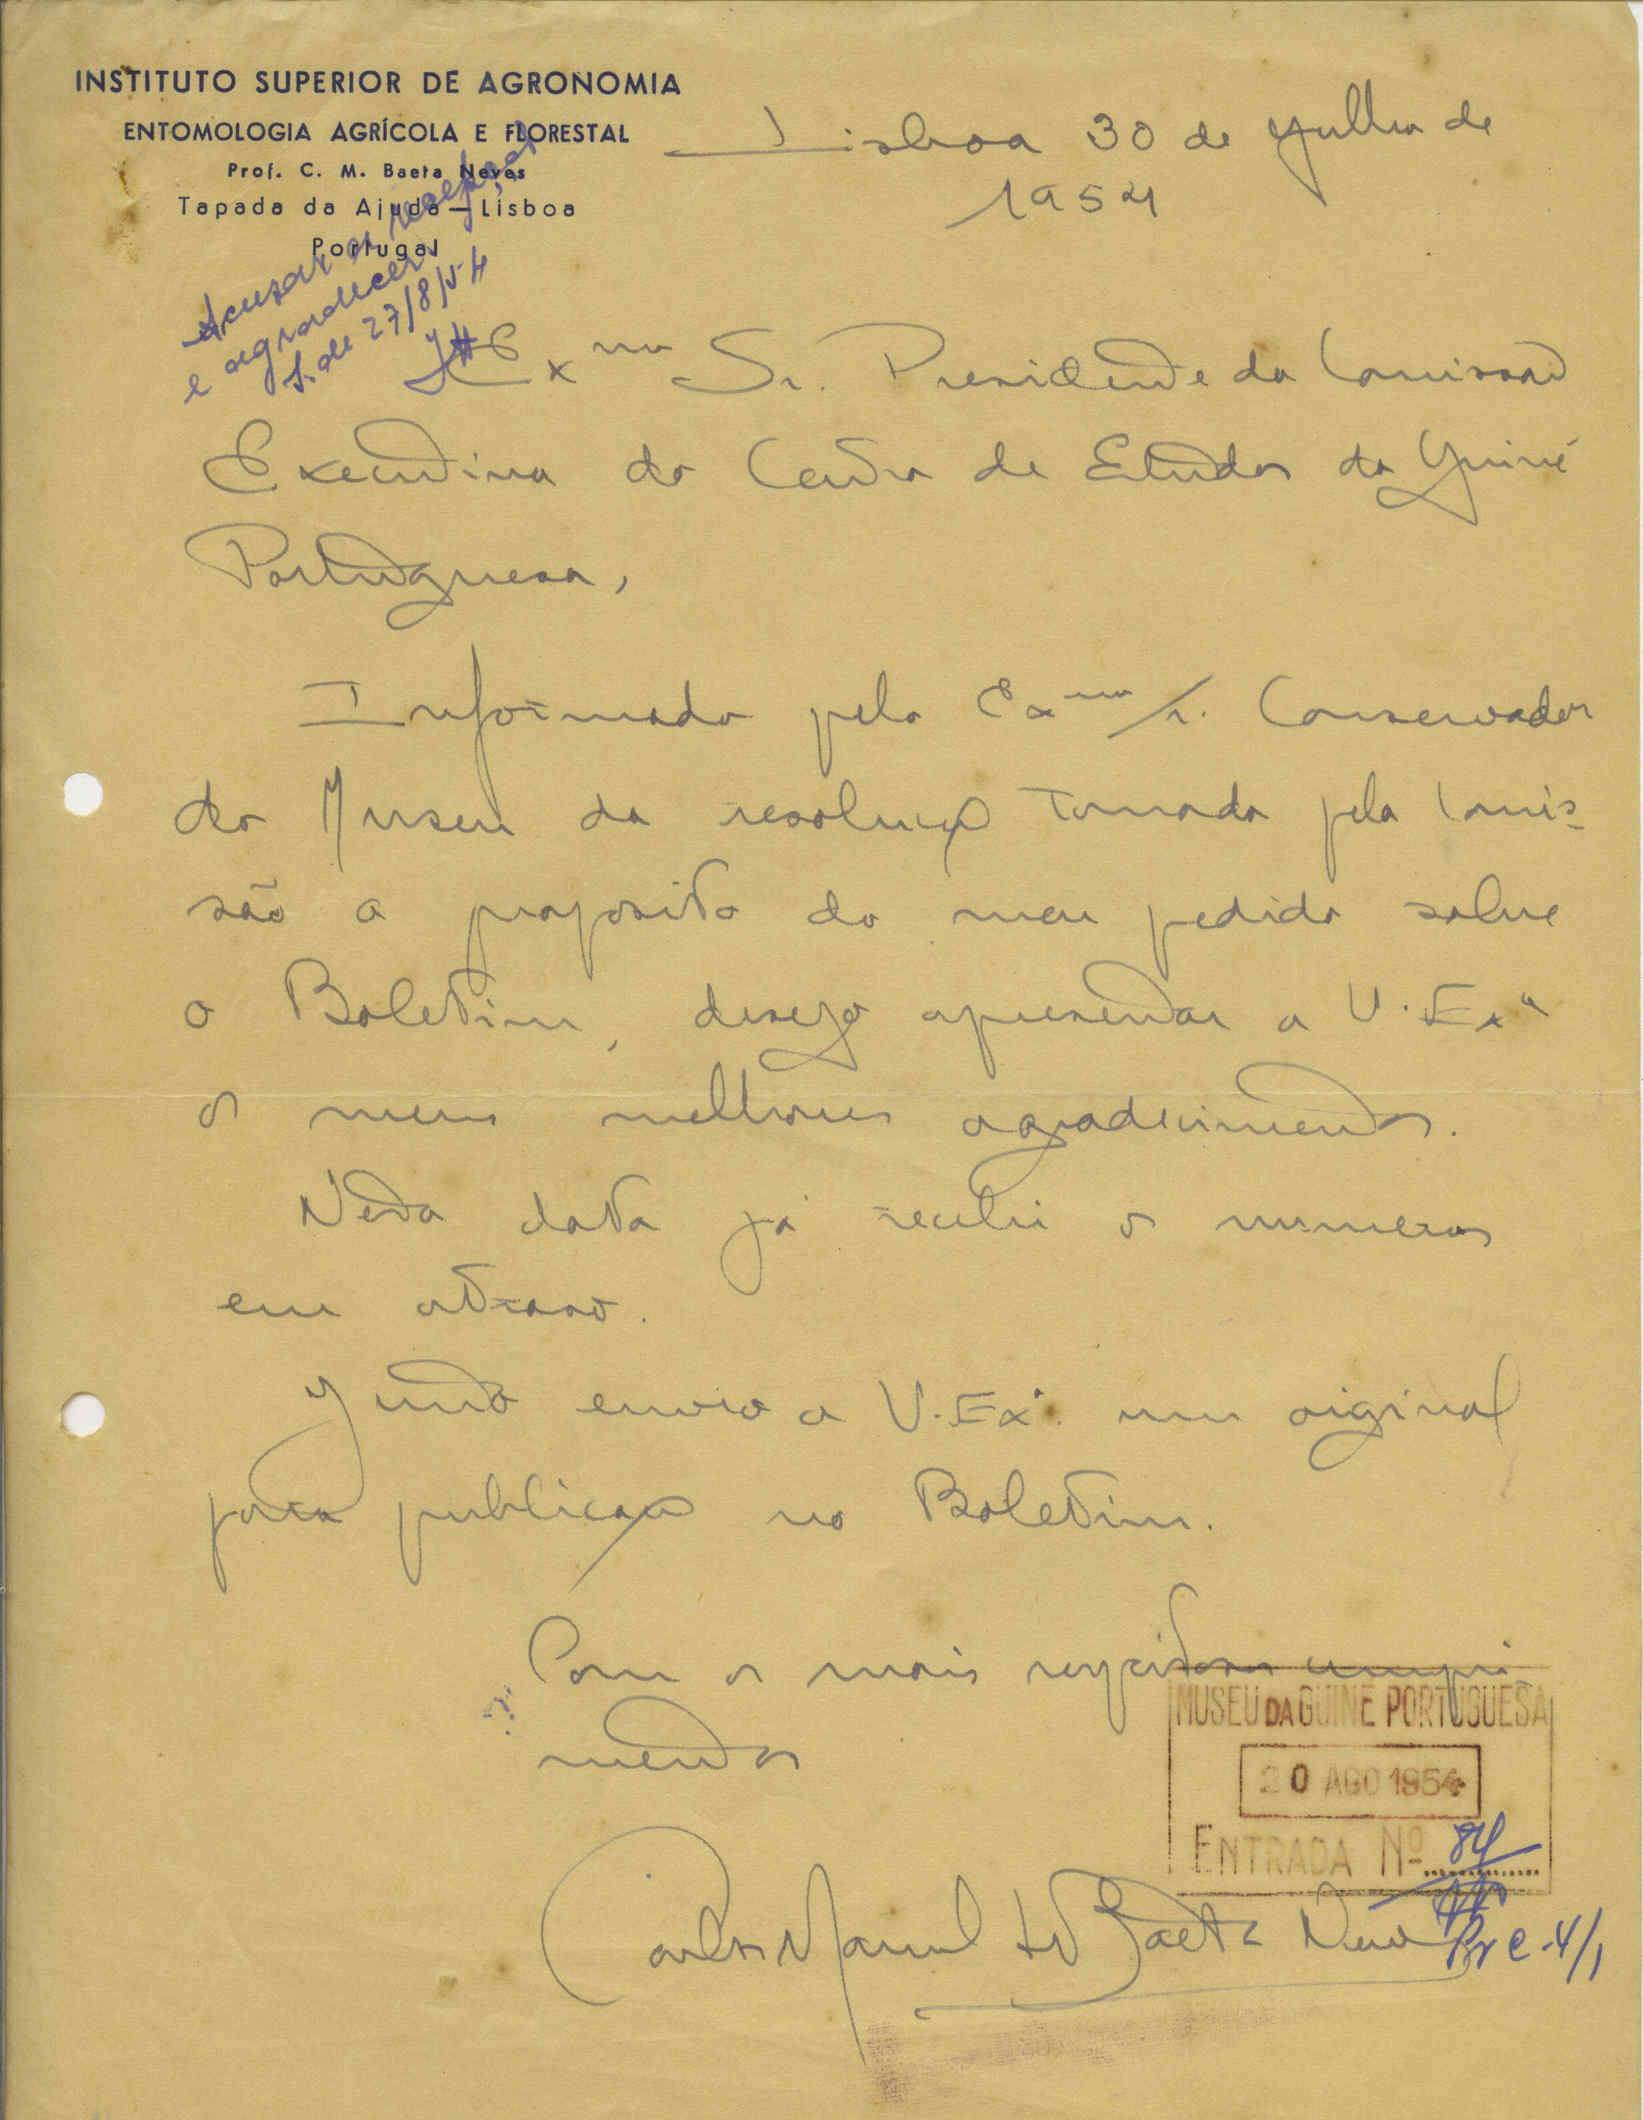 INSTITUTO SUPERIOR DE AGRONOMIA
ENTOMOLOGIA AGRÍCOLA E FLORESTAL
Prof. C. M. Baeta Neves
Tapada da Ajuda — Lisboa
Portugal
Lisboa 30 de Julho de
1954
Acusar a recepção
e agradecer
27/8/54
Exmo Sr. Presidente da Comissão
Executiva do Centro de Estudos da Guiné
Portuguesa,
Informado pelo Exmo Sr. Conservador
do Museu da resolução tomada pela Comis-
são a proposito do meu pedido sobre
o Boletim, desejo apresentar a V. Exa
os meus melhores agradecimentos.
Nesta data já recebi os numeros
em atraso.
Junto envio a V. Exa. um original
para publicação no Boletim.
Com os mais respeitosos cumpri
mentos
MUSEU DA GUINÉ PORTUGUESA
20 AGO 1954
ENTRADA Nº 84
Carlos Manuel L. Baeta Neves
Pr C-4/1